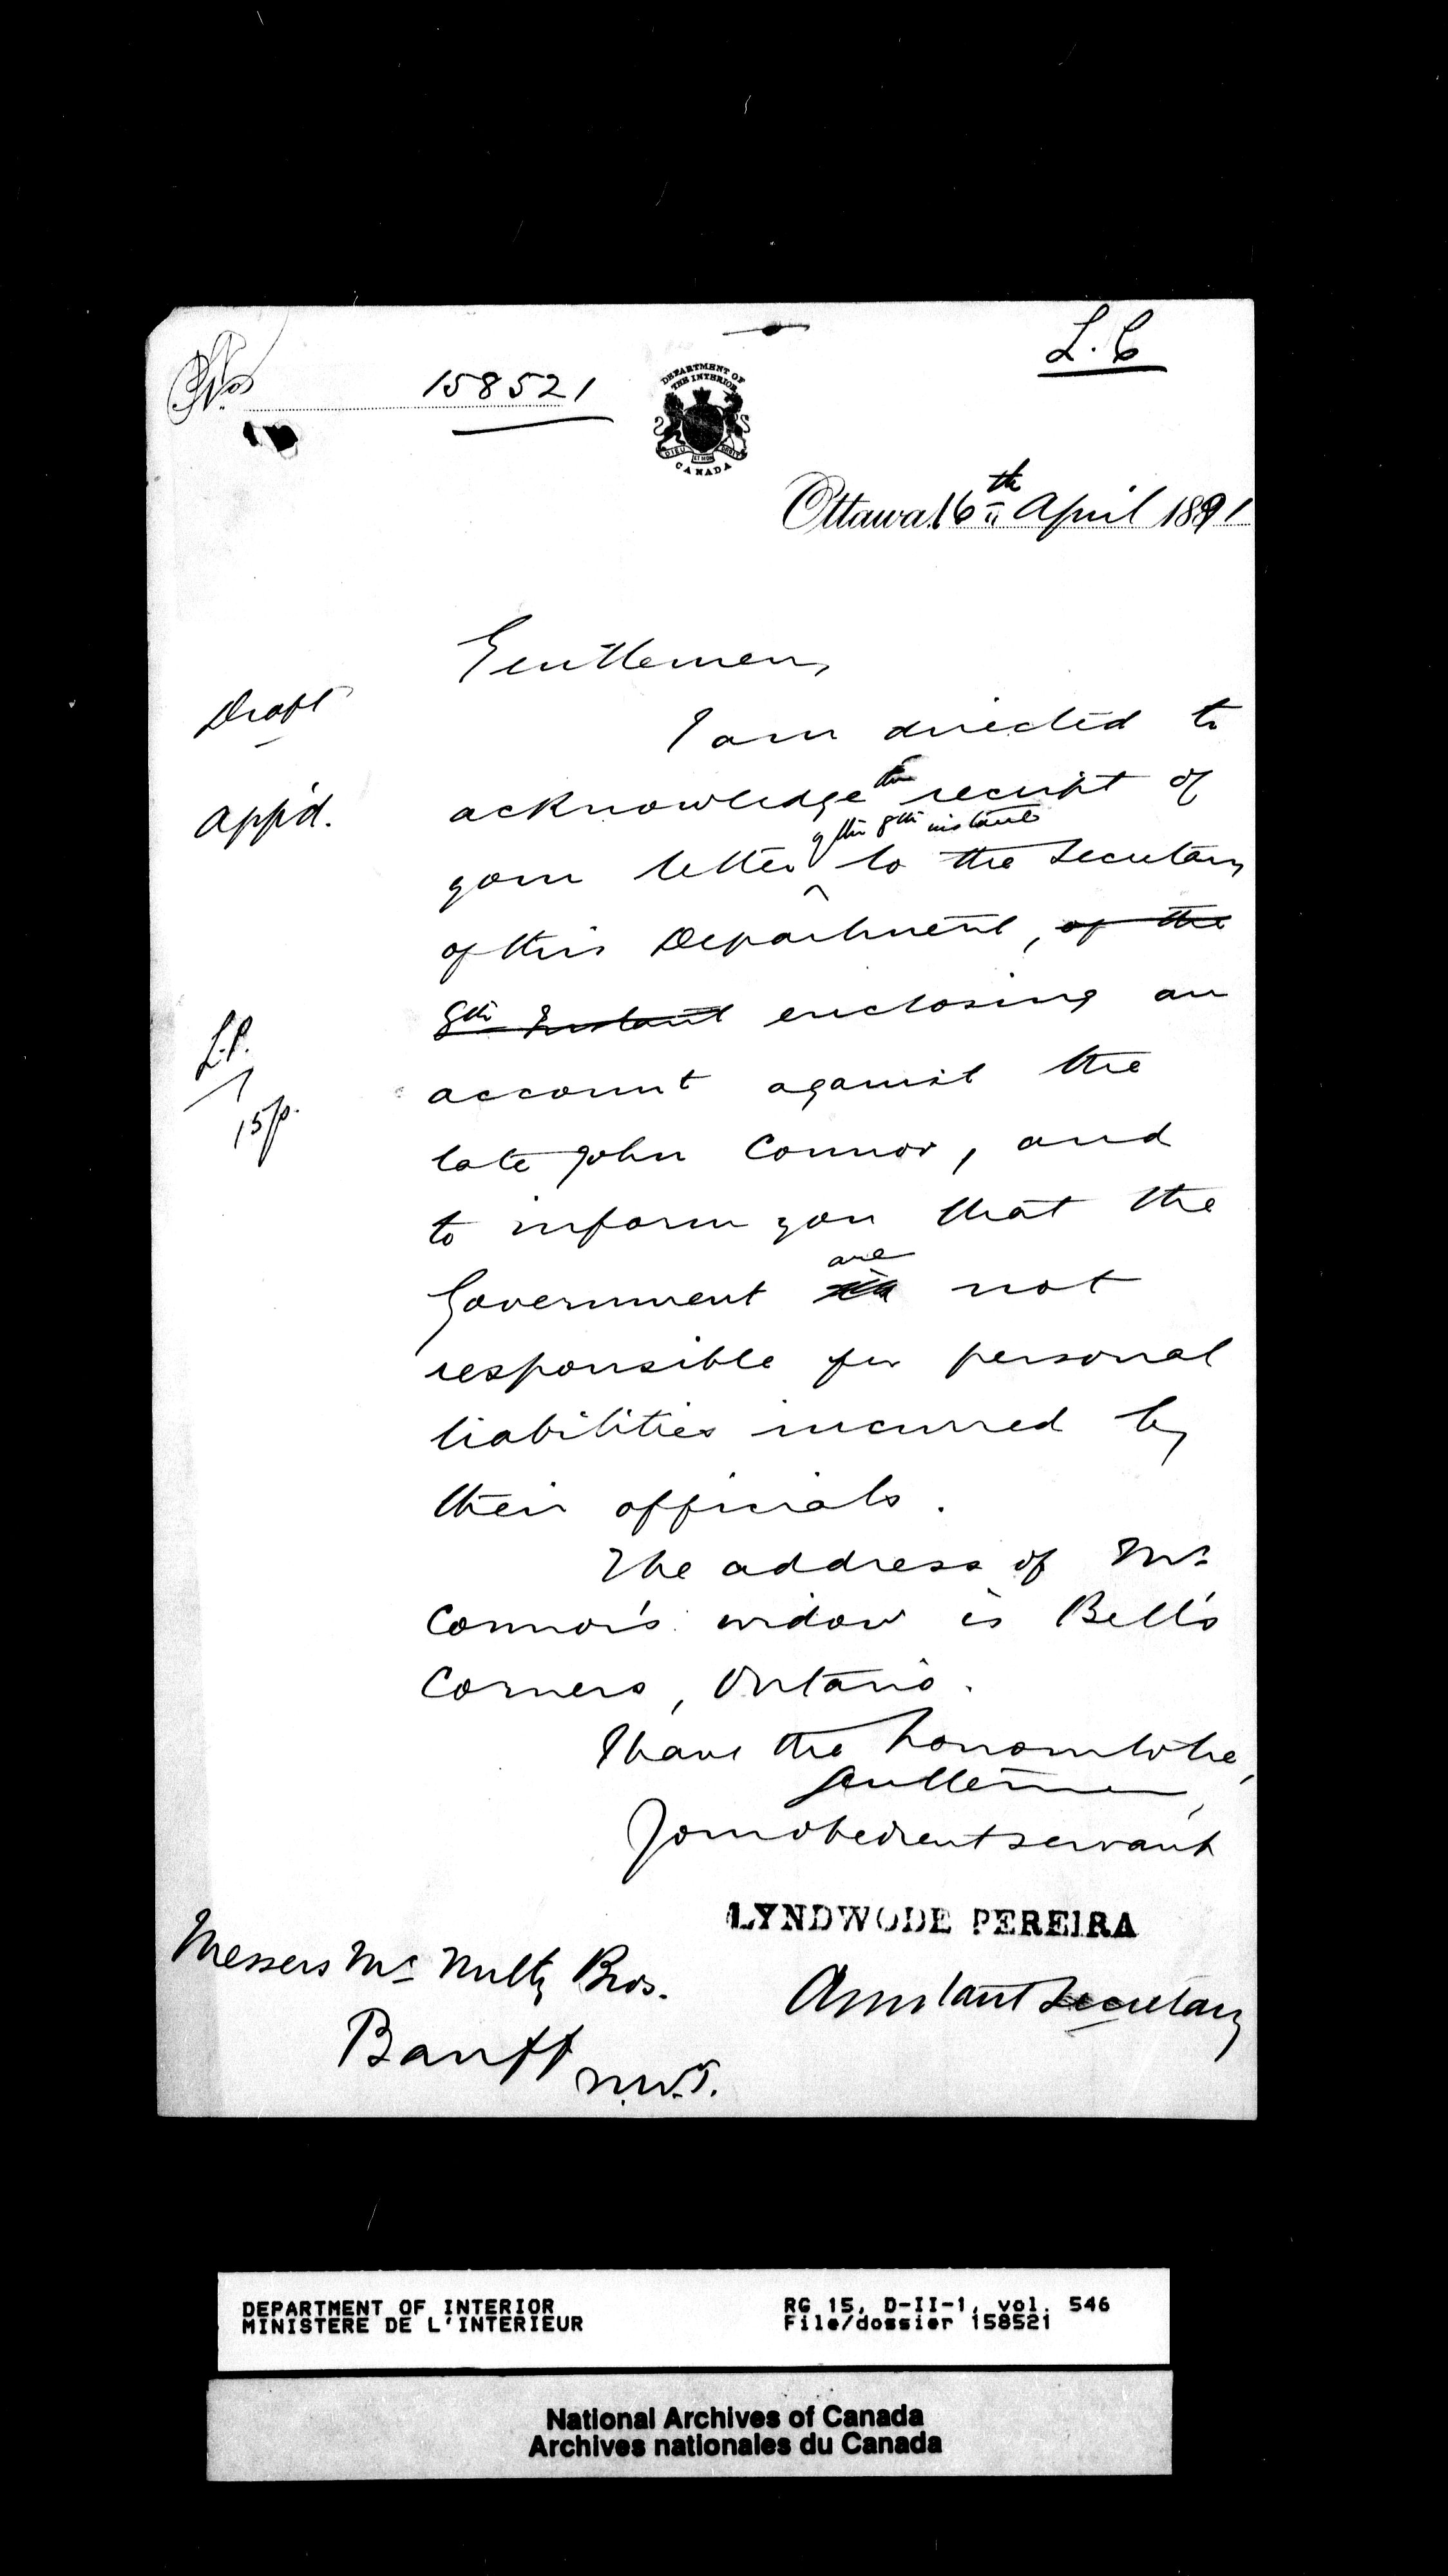 L. C
No. 158521
DEPARTMENT OF
THE INTERIOR
DIEU ET MON DROIT
CANADA
Ottawa 16th April 1891
Gentlemen,
Draft
I am directed to
App'd.
acknowledge the receipt of
of the 8th instant
your letter to the Secretary
of this Department, of the
8th Instant enclosing an
L.P.
account against the
15/
late John Connor, and
to inform you that the
are
Government not
responsible for personal
liabilities incurred by
their officials.
The address of Mr
Connor's widow is Bell's
Corners, Ontario.
I have the honour to be,
Gentlemen,
Your obedient servant
LYNDWODE PEREIRA
Assistant Secretary
Messers Mc Nulty Bros.
Banff N.W.T.
DEPARTMENT OF INTERIOR
MINISTERE DE L'INTERIEUR
RG 15, D-II-1, vol. 546
File/dossier 158521
National Archives of Canada
Archives nationales du Canada